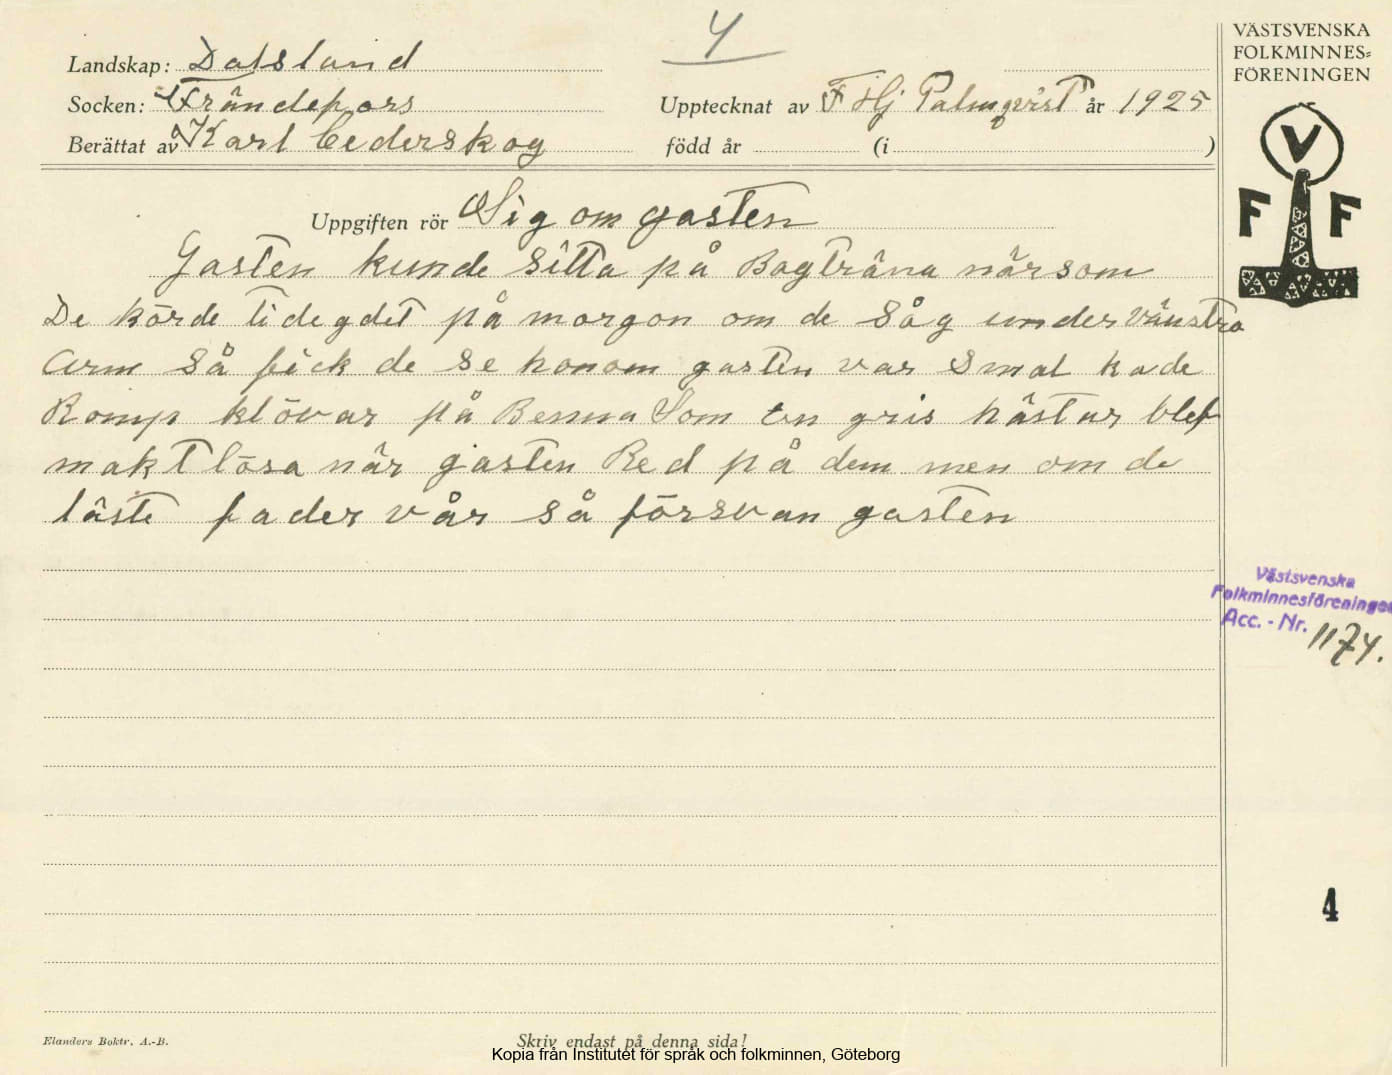 4
VÄSTSVENSKA
FOLKMINNES=
FÖRENINGEN
Landskap: Dalsland
Socken: Frändefors
Upptecknat av F Hj Palmqvist år 1925
Berättat av Karl Cederskog
född år (i )
V
F F
Uppgiften rör Sig om gasten
Gasten kunde Sitta på Bagträna närsom
De körde tidegdet på morgon om de Såg under vänstra
arm Så fick de Se honom gasten var Smal hade
Romp klövar på Benna Som en gris hästar blef
maktlösa när gasten Red på dem men om de
läste fader vår Så försvan gasten
Västsvenska
Folkminnesföreningen
Acc. - Nr. 1174.
4
Elanders Boktr. A.-B.
Skriv endast på denna sida!
Kopia från Institutet för språk och folkminnen, Göteborg